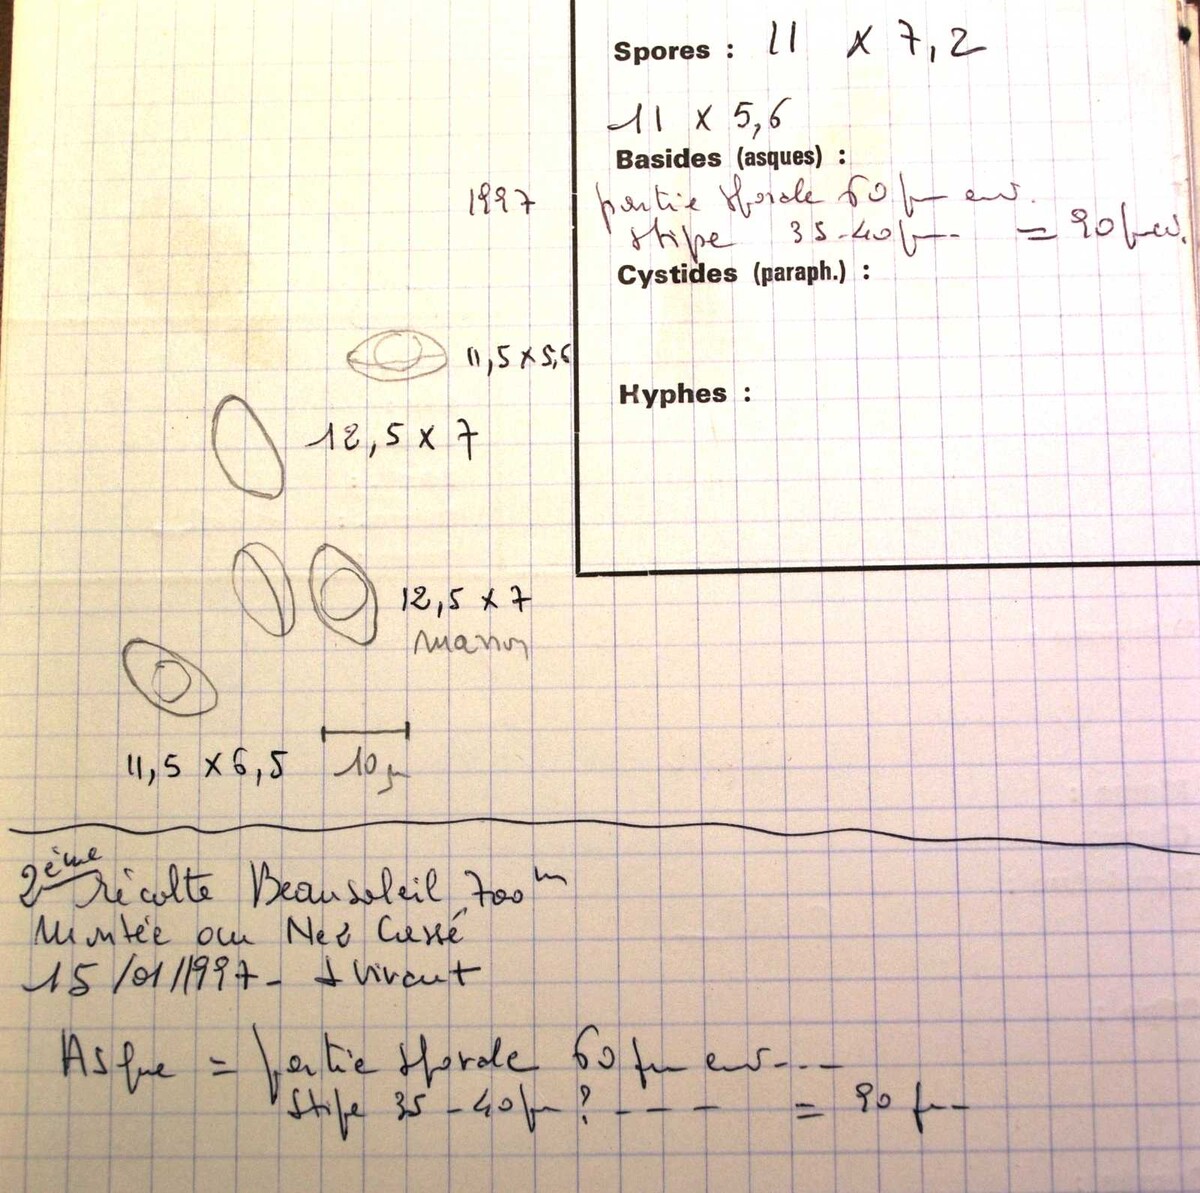 Spores : 11 x 7,2
11 x 5,6
Basides (asques) :
1997
partie sporale 60 µm env.
stipe 35-40 µm = 90 µm env.
Cystides (paraph.) :
Hyphes :
11,5 x 5,6
12,5 x 7
12,5 x 7
marron
11,5 x 6,5
10 µ
2ème récolte Beausoleil 700m
Montée au Nez Cassé
15/01/1997 -
Asque = partie sporale 60 µm env ---
stipe 35-40 µm ? --- = 90 µm